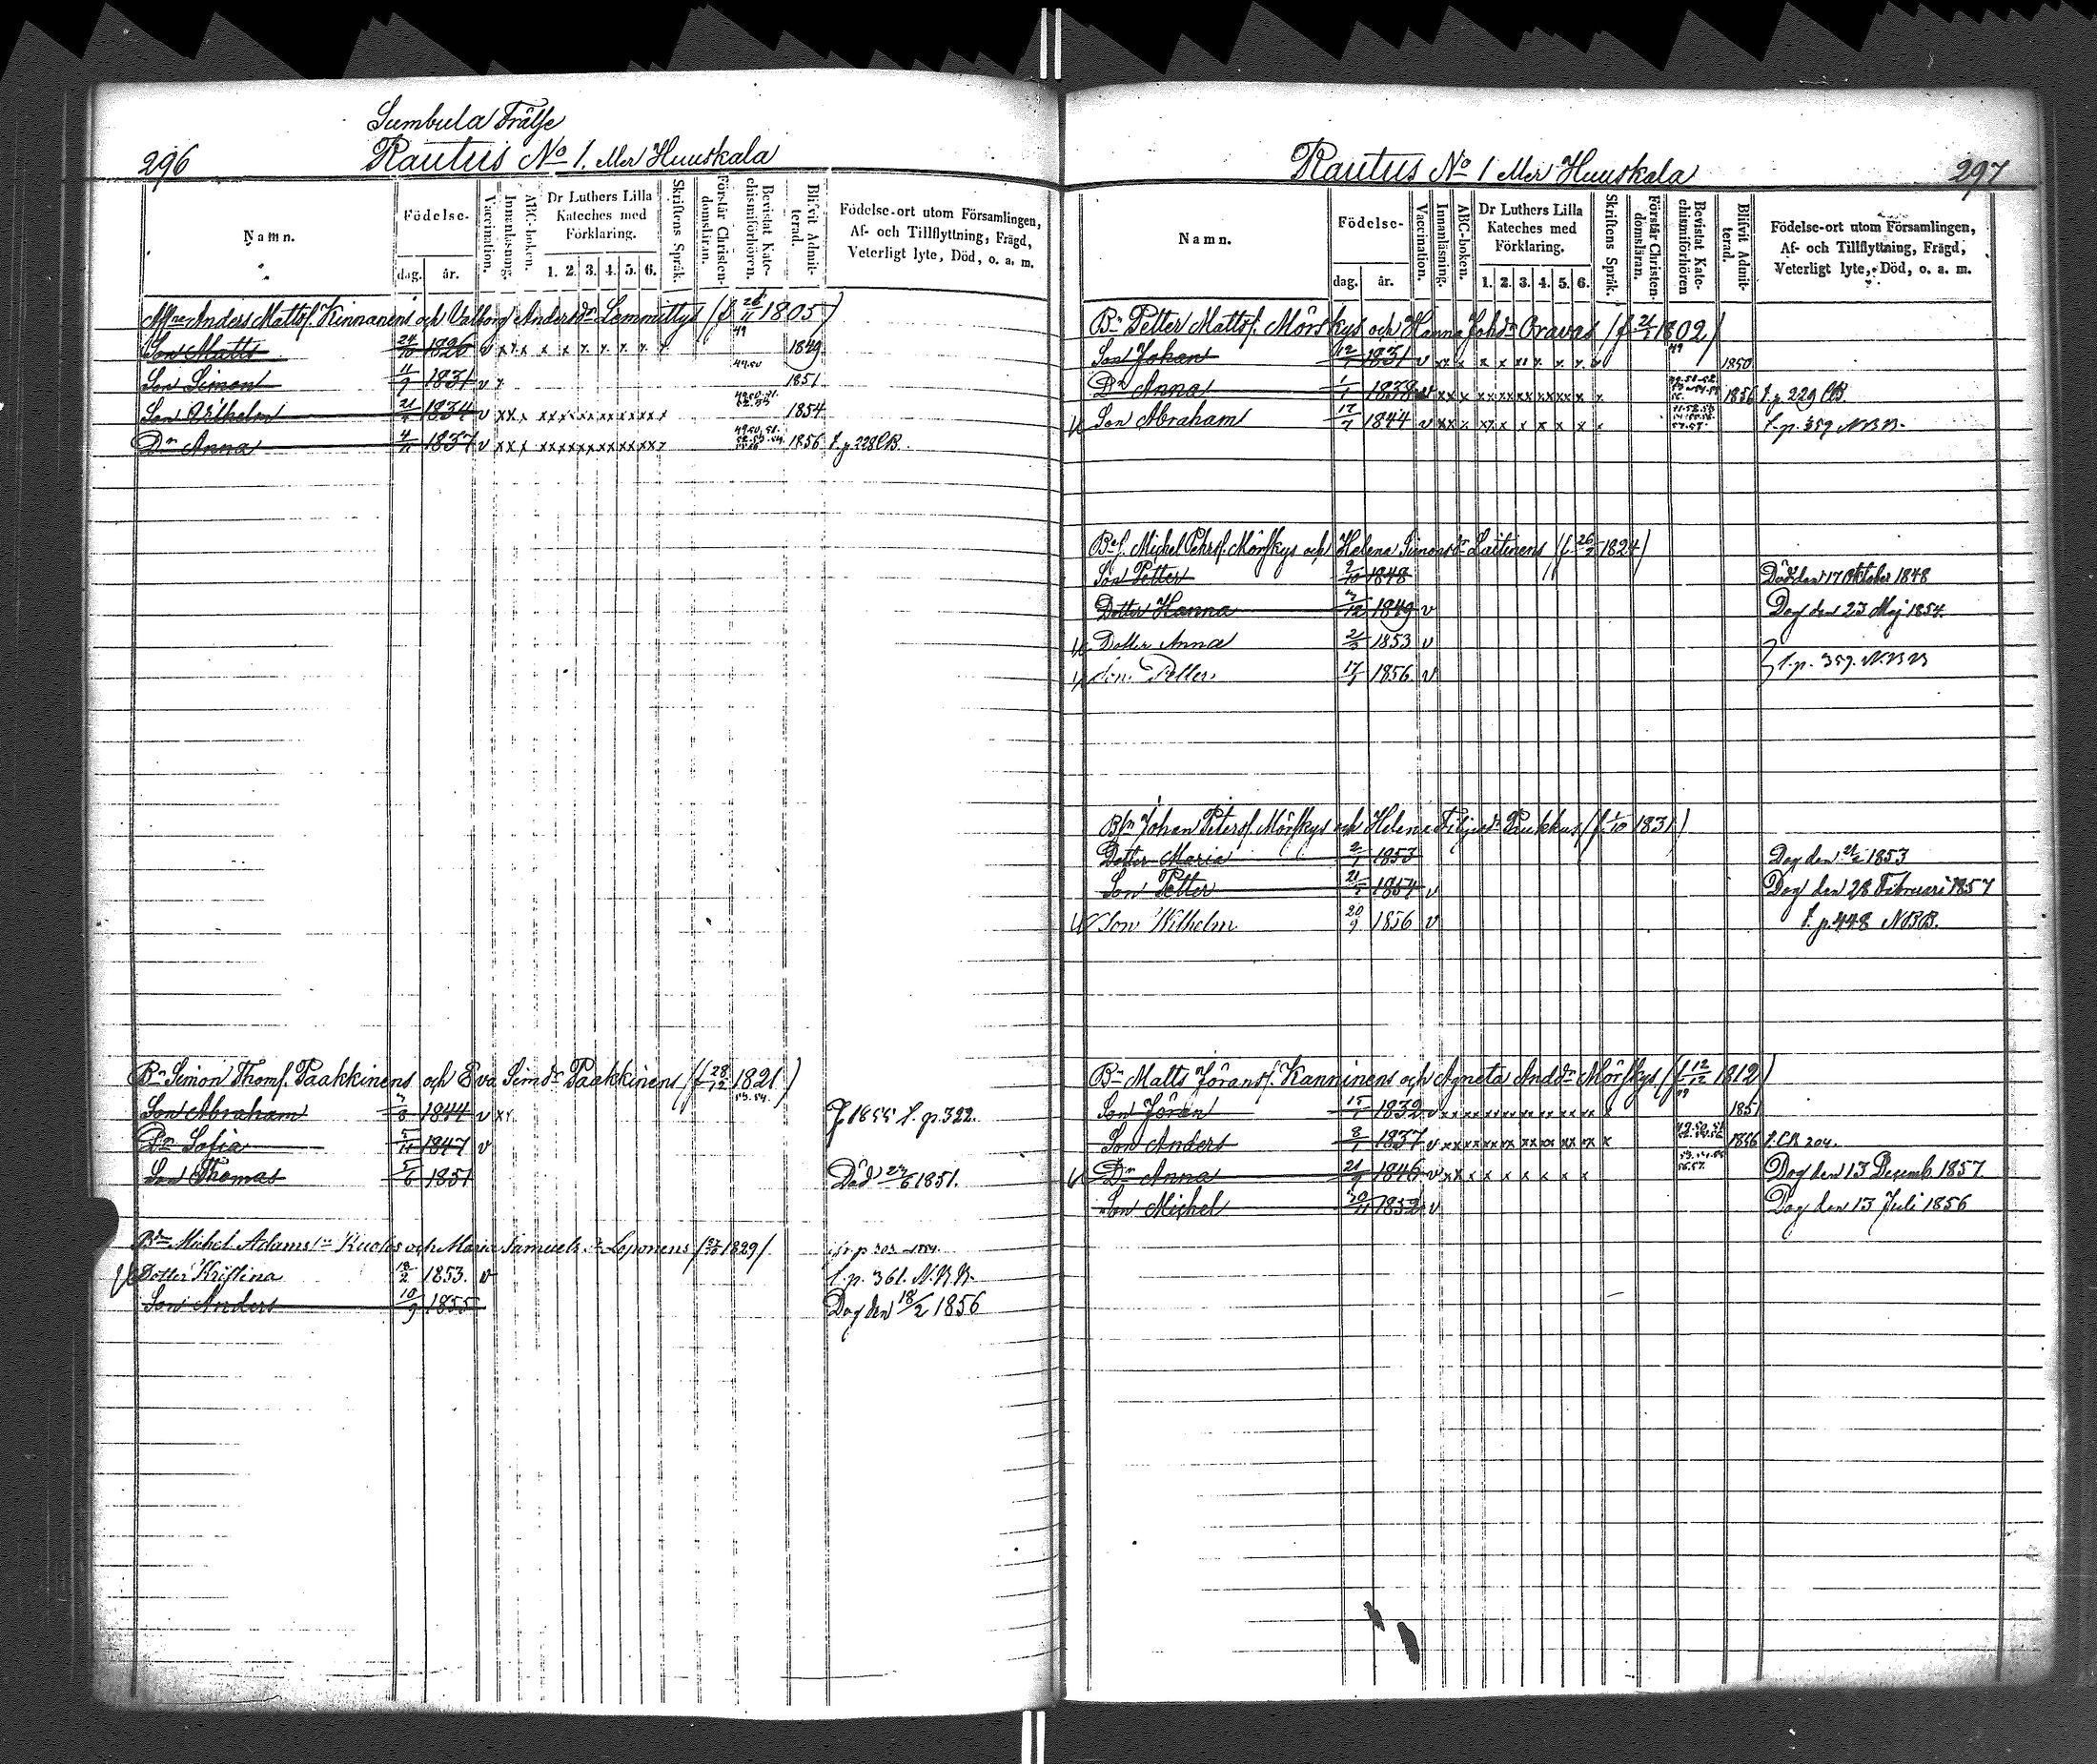 Sumbula Frälse
296 Rautus No 1. eller Huuskala
Namn. Födelse- dag. år. Vaccination. Innanläsning. ABC-boken. Dr Luthers Lilla Kateches med Förklaring. 1. 2. 3. 4. 5. 6. Skriftens Språk. Förstår Christendomsläran. Bevistat Katechismiförhören. Blifvit Admitterad. Födelse-ort utom Församlingen, Af- och Tillflyttning, Frägd, Veterligt lyte, Död, o. a. m.
Anders Mattsf. Kinnanens och Valborg Andersdr Lemmittys (f 26/11 1805)
Son Matts 24/10 1826 v x x x x x x x x x x 49 1849
Son Simon 11/9 1831 v x 49.50 1851
Son Wilhelm 21/ 1834 v xx x xxxxxxxxxxx x 1854
Dr Anna 4/11 1837 v xx x xxxxxxxxxxx x 1856 f. p 228 CB.
Bn Simon Thomf. Paakkinens och Eva Simdr Paakkinens (f 28/12 1821.)
Son Abraham /8 1844 v xx 53.54. 1855 f. p. 322.
Dr Sofia 5/11 1847 v
Son Thomas 5/6 1851 Död 24/6 1851.
Michel Adams Kuolos och Maria Samuels dr Loponens 1829).
Dotter Kristina 18/2 1853. v f. p. 361. N.B.B.
Son Anders 10/9 1855 Dog den 18/2 1856
Rautus No 1 eller Huuskala 297
Namn. Födelse- dag. år. Vaccination. Innanläsning. ABC-boken. Dr Luthers Lilla Kateches med Förklaring. 1. 2. 3. 4. 5. 6. Skriftens Språk. Förstår Christendomsläran. Bevistat Katechismiförhören Blifvit Admitterad. Födelse-ort utom Församlingen, Af- och Tillflyttning, Frägd, Veterligt lyte, Död, o. a. m.
Bn Petter Mattsf. Mörskys och Hanna Johdr Oravas (f 21/1 1802)
Son Johan 12/ 1831 v xx x x x xx x x x 49 1850
Dr Anna 1/1 1838 v xx x xxxxxxxxxx x 1856 f. p 229 CB
Son Abraham 17/7 1844 v xx x xx x x x x x x f. p. 359 N.B.B.
Michel Pehrsf. Mörskys och Helena Simonsdr Laitinens (f 26/2 1824)
Son Petter 2/10 1848 Död den 17 Oktober 1848
Dotter Hanna /12 1849 v Dog den 23 Maj 1854.
Dotter Anna 2/3 1853 v
Son Petter. 17/ 1856 v f. p. 359. N.B.B
Johan Petersf Mörskys och Helena Filipsdr Paukkus (f. 1/10 1831)
Dotter Maria 2/1 1853 Dog den 21/2 1853
Son Petter 21/ 1854 v Dog den 28 Februari 1857
Son Wilhelm 20/9 1856 v f. p. 448 N.B.B.
Bn Matts Göransf. Kanninens och Agneta Anddr Mörskys (f 12/12 1812)
Son Göran 15/1 1832 v xxxxxxxxxxxxx x 49 1851
Son Anders 8/1 1837 v xxxxxxx xx xx xx xx x 1856 f. CB 204.
Dr Anna 21/9 1846 v xx x x x x x x x Dog den 13 Decemb. 1857.
Son Michel 20/11 1852 v Dog den 13 Juli 1856